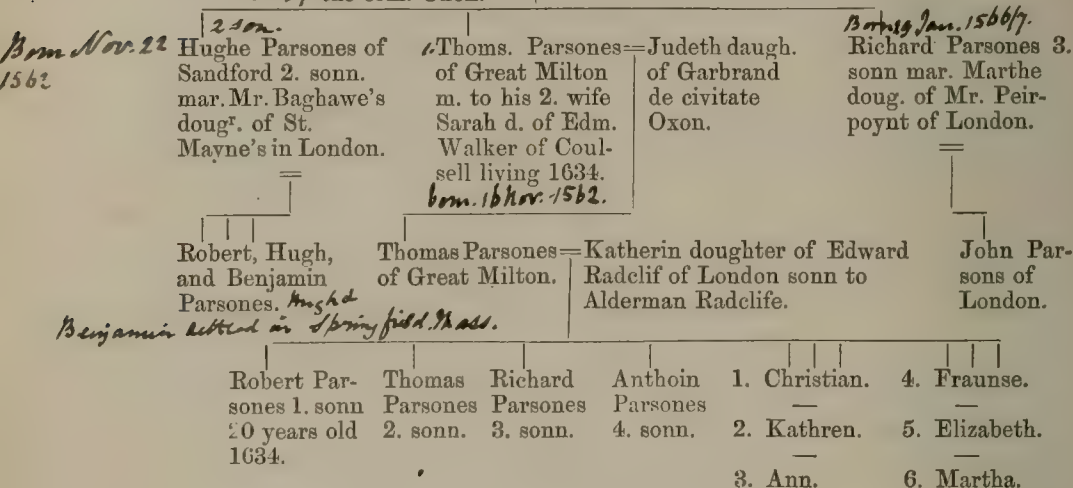 2 son.
Born Nov. 22
1562
Hughe Parsones of
Sandford 2. sonn.
mar. Mr. Baghawe's
dougr. of St.
Mayne's in London.
1. Thoms. Parsones=Judeth daugh.
of Great Milton
m. to his 2. wife
Sarah d. of Edm.
Walker of Coul-
sell living 1634.
born. 16 Nov. 1562.
of Garbrand
de civitate
Oxon.
Jan. 1566/7.
Richard Parsones 3.
sonn mar. Marthe
doug. of Mr. Peir-
poynt of London.
Robert, Hugh,
and Benjamin
Parsones. Hugh &
Benjamin settled in Springfield Mass.
Thomas Parsones=Katherin doughter of Edward
of Great Milton.
Radclif of London sonn to
Alderman Radclife.
John Par-
sons of
London.
Robert Par-
sones 1. sonn
20 years old
1634.
Thomas
Parsones
2. sonn.
Richard
Parsones
3. sonn.
Anthoin
Parsones
4. sonn.
1. Christian.
2. Kathren.
3. Ann.
4. Fraunse.
5. Elizabeth.
6. Martha.